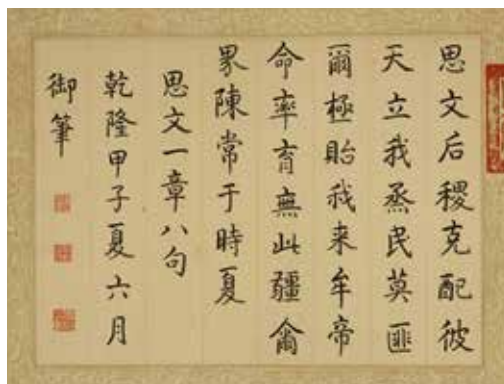 思文后稷克配彼
天立我烝民莫匪
爾極貽我来牟帝
命率育無此疆爾
界陳常于時夏
思文一章八句
乾隆甲子夏六月
御筆